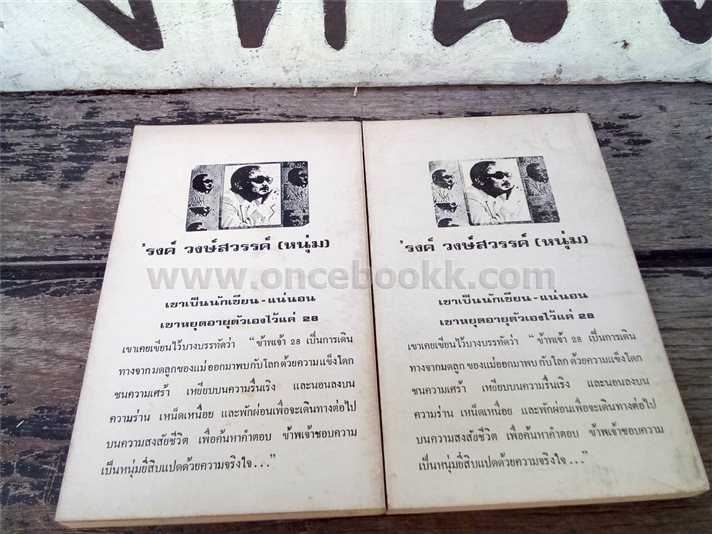 'รงค์ วงษ์สวรรค์ (หนุ่ม)
เขาเป็นนักเขียน - แน่นอน
เขาหยุดอายุตัวเองไว้แค่ 28
เขาเคยเขียนไว้บางบรรทัดว่า “ ข้าพเจ้า 28 เป็นการเดิน
ทางจากมดลูกของแม่ออกมาพบกับโลกด้วยความแข็งโดก
ชนความเศร้า เหยียบบนความรื่นเริง และนอนลงบน
ความร่าน เหน็ดเหนื่อย และพักผ่อนเพื่อจะเดินทางต่อไป
บนความสงสัยชีวิต เพื่อค้นหาคำตอบ ข้าพเจ้าชอบความ
เป็นหนุ่มยี่สิบแปดด้วยความจริงใจ ...”
'รงค์ วงษ์สวรรค์ (หนุ่ม)
เขาเป็นนักเขียน - แน่นอน
เขาหยุดอายุตัวเองไว้แค่ 28
เขาเคยเขียนไว้บางบรรทัดว่า “ ข้าพเจ้า 28 เป็นการเดิน
ทางจากมดลูก ของแม่ออกมาพบกับโลกด้วยความแข็งโดก
ชนความเศร้า เหยียบบนความรื่นเริง และนอนลงบน
ความร่าน เหน็ดเหนื่อย และพักผ่อนเพื่อจะเดินทางต่อไป
บนความสงสัยชีวิต เพื่อค้นหาคำตอบ ข้าพเจ้าชอบความ
เป็นหนุ่มยี่สิบแปดด้วยความจริงใจ ...”
www.oncebookk.com